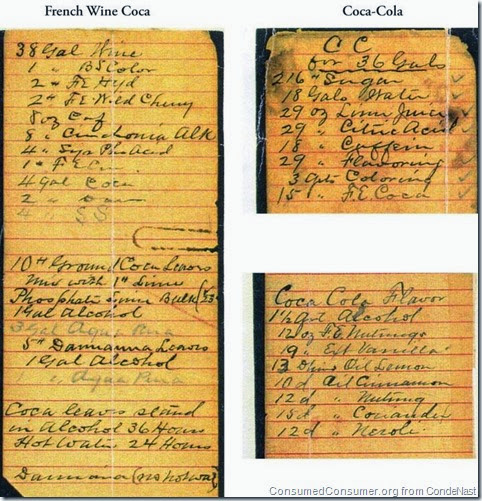 French Wine Coca
38 Gal Wine
1 " BS Color
2 " F.E. Hyd
2 " F.E. Wild Cherry
8 oz Caf
8 " Cinchonia Alk
4 "
1 "
4 Gal Coca
2 "
4 "
10 # Ground Coca Leaves
Mix with 1 # Lime
Phosphate Lime Bulk
1 Gal Alcohol
3 Gal Aqua Pura
5 # Damianna Leaves
1 Gal Alcohol
1 " Aqua Pura
Coca leaves stand
in Alcohol 36 Hours
Hot Water 24 Hours
Damiana (no hot wa)
Coca-Cola
C C
for 36 Gals
216 # Sugar
18 Gals Water
29 oz Lime Juice
29 " Citric Acid
18 " Caffein
29 " Flavoring
3 Gals Coloring
15 " F.E. Coca
Coca Cola Flavor
1½ Gal Alcohol
12 oz F.E. Nutmegs
19 " Ext Vanilla
13 Oil Lemon
10 d Oil Cinnamon
12 d " Nutmeg
15 d " Coriander
12 d " Neroli
ConsumedConsumer.org from CondeNast